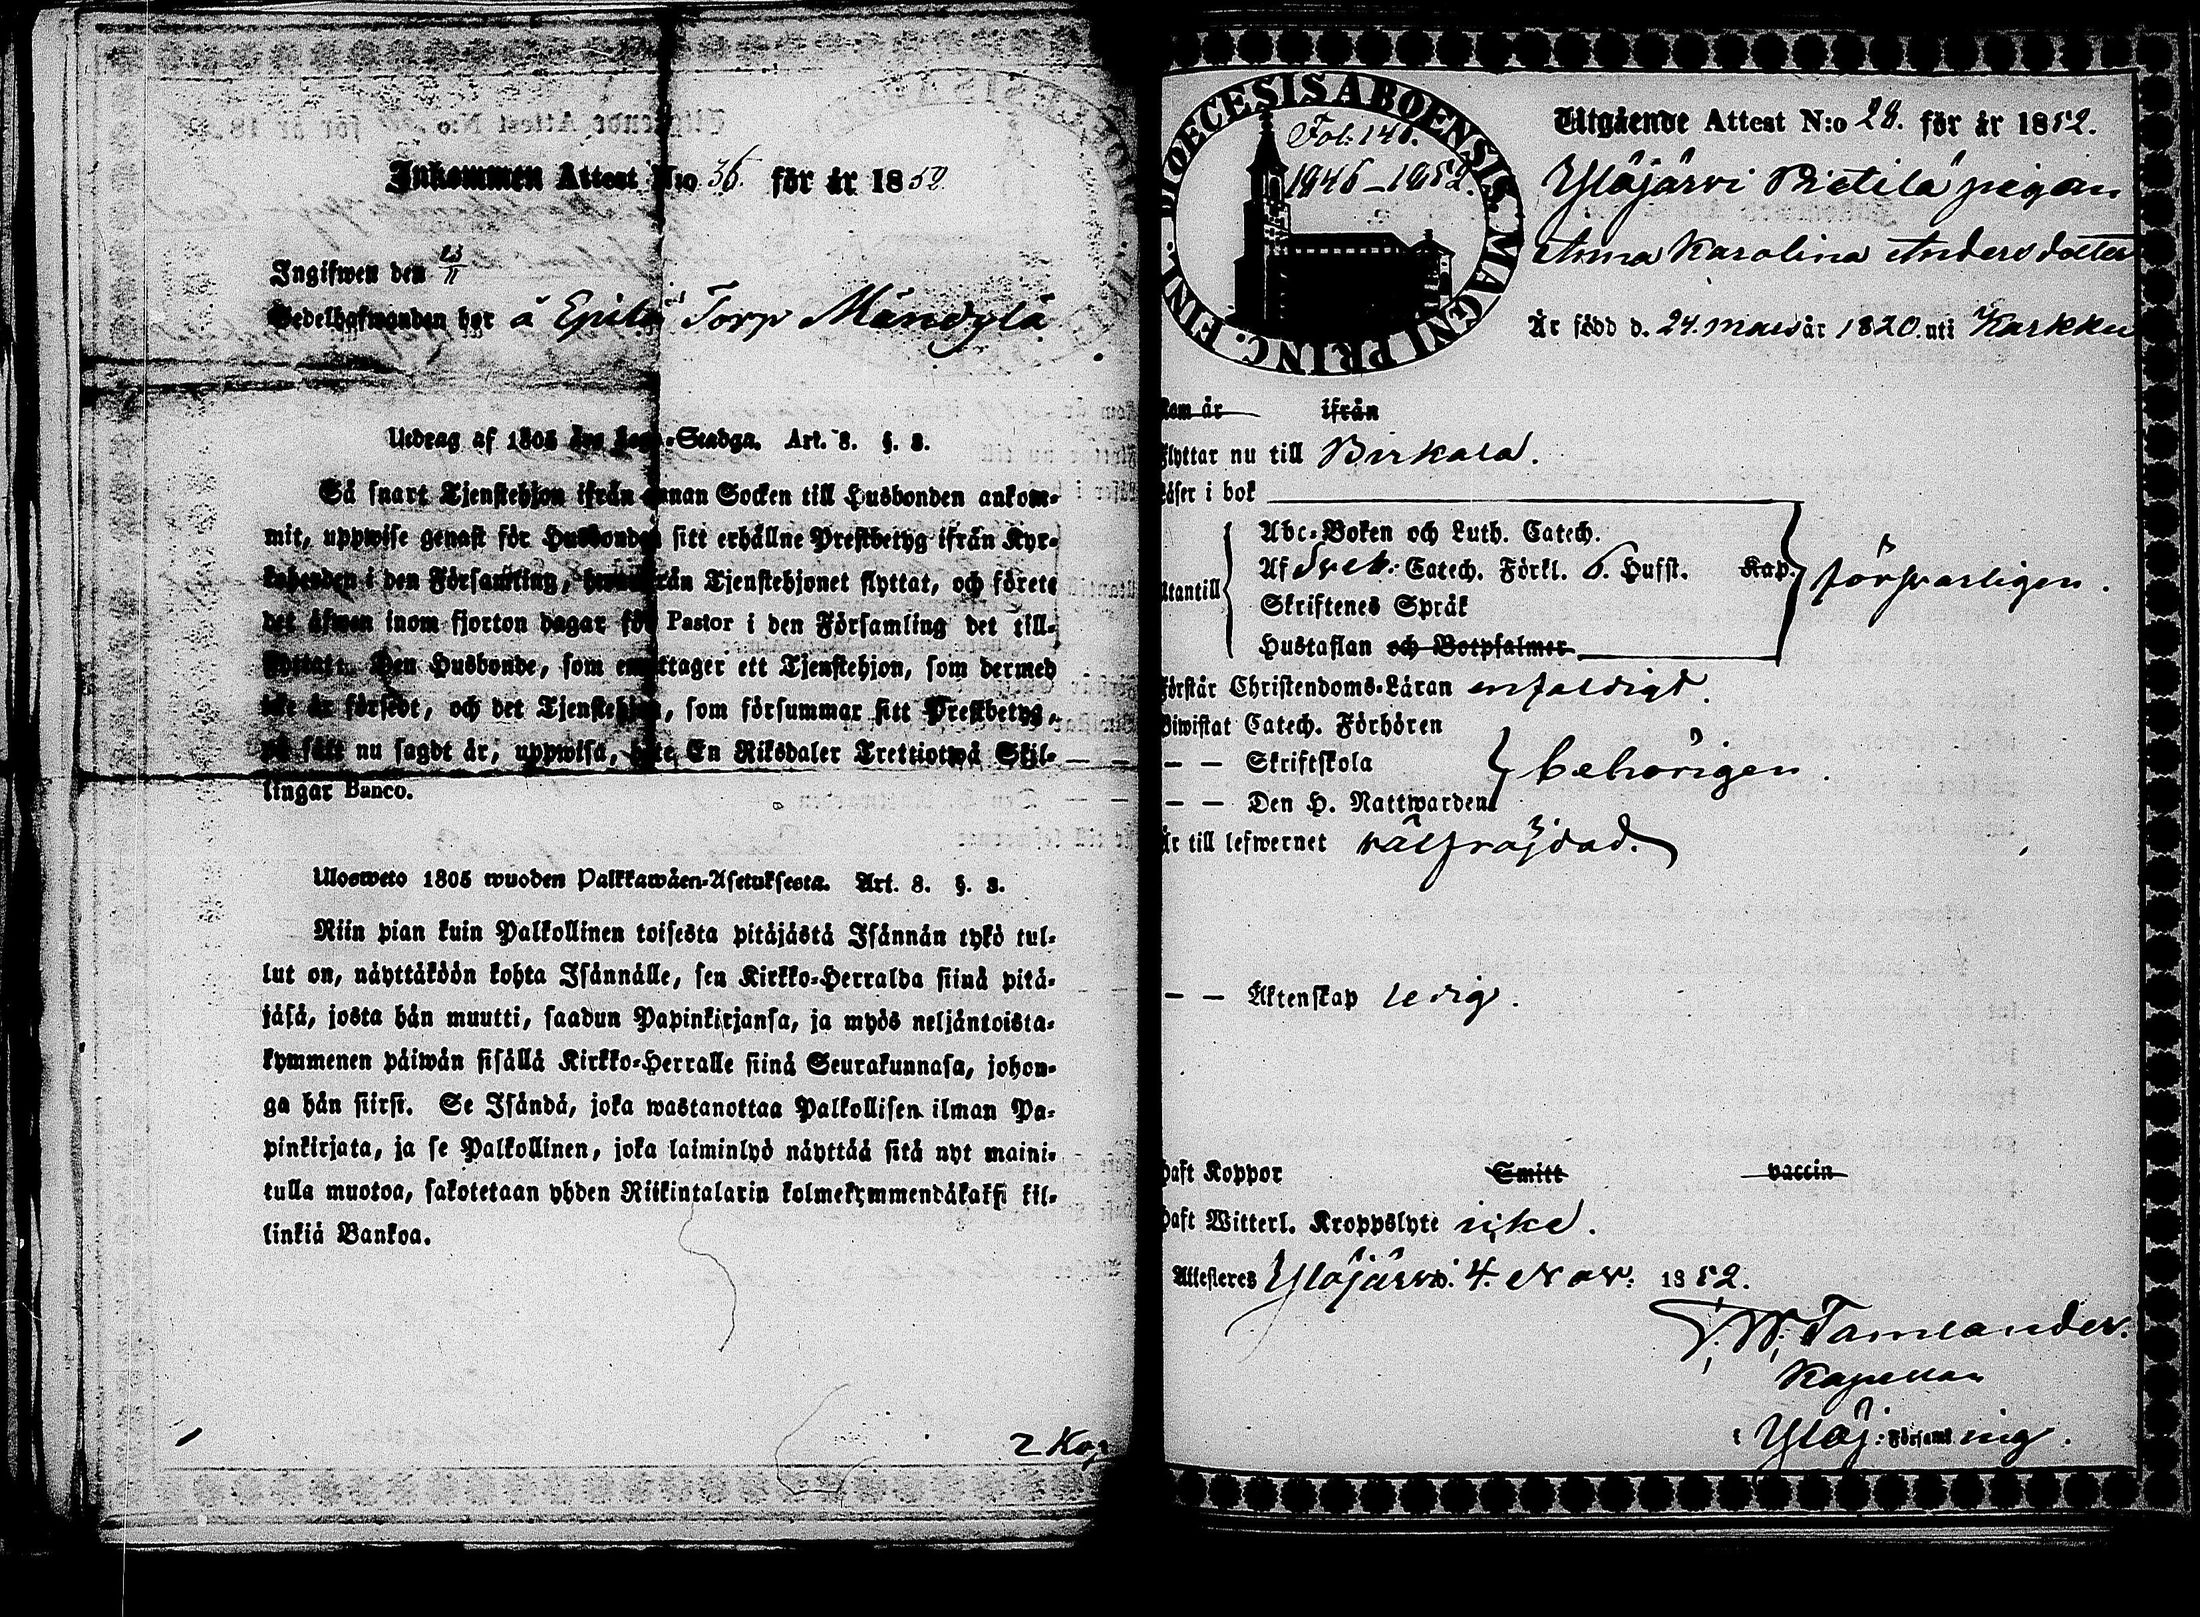 Inkommen Attest N:o 36. för år 1852
Ingifwen den 23/11
Sedelhafwanden har å Epilä Torp Mändylä
Utdrag af 1805 års Lego-Stadga. Art. 8. §. 3.
Så snart Tjenstehjon ifrån annan Socken till Husbonden ankom-
mit, uppwise genast för Husbonden sitt erhållne Prestbetyg ifrån Kyr-
koherden i den Församling, hwarifrån Tjenstehjonet flyttat, och förete
det äfwen inom fjorton dagar för Pastor i den Församling det till-
flyttat. Den Husbonde, som emottager ett Tjenstehjon, som dermed
icke är försedt, och det Tjenstehjon, som försummar sitt Prestbetyg,
på sätt nu sagdt är, uppwisa, böte En Riksdaler Trettiotwå Skil-
lingar Banco.
Ulosweto 1805 wuoden Palkkawäen-Asetuksesta. Art. 8. §. 3.
Niin pian kuin Palkollinen toisesta pitäjästä Isännän tykö tul-
lut on, näyttäköön kohta Isännälle, sen Kirkko-Herralda siinä pitä-
jäsä, josta hän muutti, saadun Papinkirjansa, ja myös neljäntoista-
kymmenen päiwän sisällä Kirkko-Herralle siinä Seurakunnasa, johon-
ga hän siirsi. Se Isändä, joka wastanottaa Palkollisen ilman Pa-
pinkirjata, ja se Palkollinen, joka laiminlyö näyttää sitä nyt maini-
tulla muotoa, sakotetaan yhden Riikintalarin kolmekymmendäkaksi kil-
linkiä Bankoa.
2 Kop
DIOECESIS ABOENSIS MAGNI PRINC. FINL.
Fol: 146.
1846–1852.
Utgående Attest N:o 28. för år 1852.
Ylöjärvi Pietilä pigan
Anna Karolina Andersdotter
Är född d. 24. mars år 1820. uti Karkku
kom år ifrån
flyttar nu till Birkala.
Läser i bok
Utantill
Abc-Boken och Luth. Catech.
Af Sveb: Catech. Förkl. 6. Hufst. Kap.
Skriftenes Språk
Hustaflan och Botpsalmer
försvarligen.
Förstår Christendoms-Läran enfaldigt.
Biwistat Catech. Förhören
– – Skriftskola
– – Den H. Nattwarden
behörigen.
Är till lefwernet välfräjdad.
– – Äktenskap ledig.
haft Koppor Smitt vaccin
haft Witterl. Kroppslyte icke.
Attesteres Ylöjärvi d. 4. Nov: 1852.
Tamlander.
Kapellan
i Ylöj: Församling.